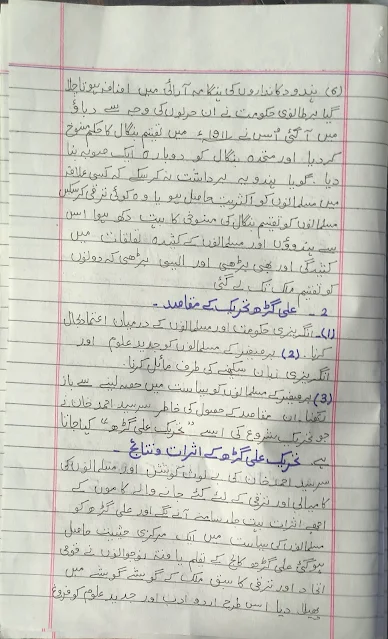 (6) ہندو دکانداروں کی ہنگامہ آرائی میں اضافہ ہوتا چلا
گیا برطانوی حکومت نے ان حربوں کی وجہ سے دباؤ
میں آ گئی اس نے 1911ء میں تقسیم بنگال کا حکم منسوخ
کر دیا اور متحدہ بنگال کو دوبارہ ایک صوبہ بنا
دیا۔ گویا ہندو یہ برداشت نہ کر سکے کہ کسی علاقہ
میں مسلمانوں کو اکثریت حاصل ہو یا وہ کوئی ترقی کر سکیں
مسلمانوں کو تقسیم بنگال کی منسوخی کا بہت دکھ ہوا اس
سے ہندوؤں اور مسلمانوں کے کشدہ تعلقات میں
کشیدگی اور بھی بڑھی اور ایسی بڑھی کہ دونوں
کو تقسیم ملک تک لے گئی
2 - علی گڑھ تحریک کے مقاصد -
(1) - انگریزی حکومت اور مسلمانوں کے درمیان اعتماد بحال
کرنا۔ (2) برصغیر کے مسلمانوں کو جدید علوم اور
انگریزی زبان سیکھنے کی طرف مائل کرنا۔
(3) برصغیر کے مسلمانوں کو سیاست میں حصہ لینے سے باز
رکھنا۔ ان مقاصد کے حصول کی خاطر سرسید احمد خان نے
جو تحریک شروع کی اسے "تحریک علی گڑھ" کہا جاتا
ہے۔ تحریک علی گڑھ کے اثرات و نتائج -
سرسید احمد خان کی بے لوث کوششیں اور مسلمانوں کی
کامیابی اور ترقی کے لئے کئے جانے والے کاموں کے
اچھے اثرات بہت جلد سامنے آنے لگے اور علی گڑھ کو
مسلمانوں کی سیاست میں ایک مرکزی حیثیت حاصل
ہو گئی علی گڑھ کالج کے تعلیم یافتہ نوجوانوں نے قومی
اتحاد اور ترقی کا سبق ملک کے گوشے گوشے میں
پھیلا دیا اس طرح اردو ادب اور جدید علوم کو فروغ